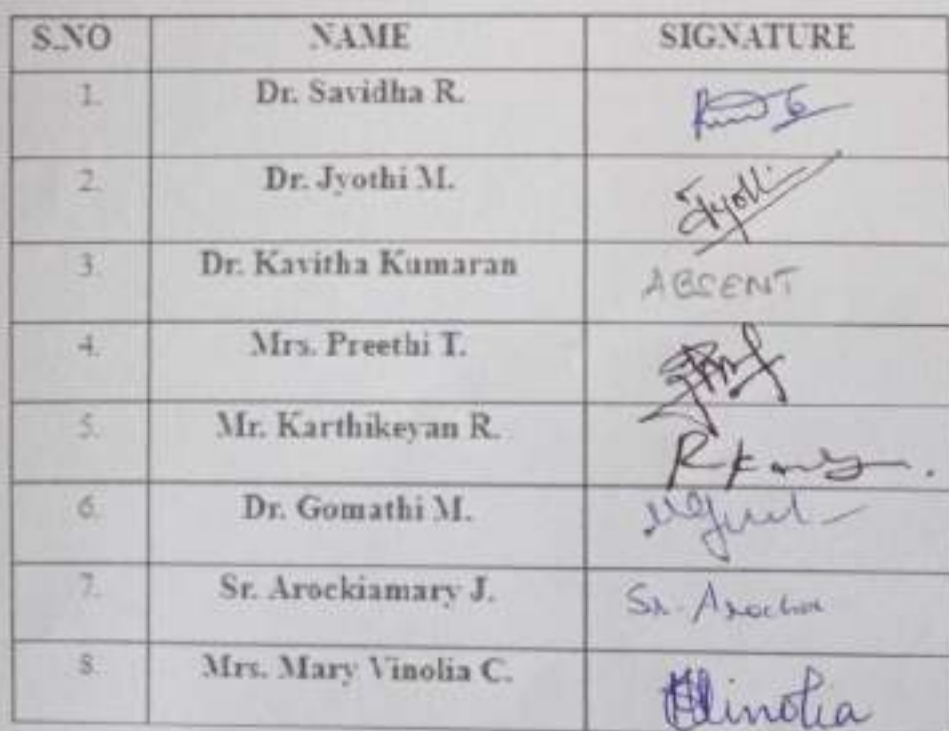 S.NO NAME SIGNATURE
1. Dr. Savidha R.
2. Dr. Jyothi M. Jyothi
3. Dr. Kavitha Kumaran ABSENT
4. Mrs. Preethi T.
5. Mr. Karthikeyan R.
6. Dr. Gomathi M.
7. Sr. Arockiamary J. Sr. Arockia
8. Mrs. Mary Vinolia C. Vinolia